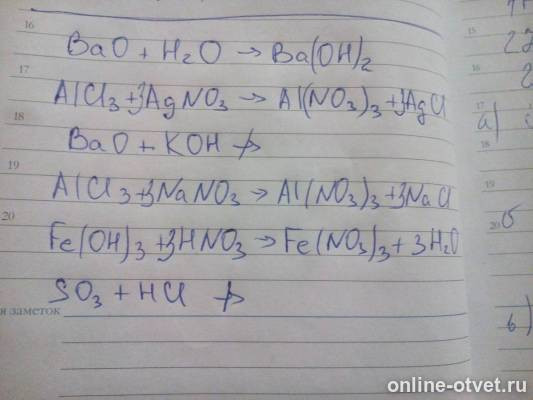 16
BaO + H₂O → Ba(OH)₂
17
AlCl₃ + 3AgNO₃ → Al(NO₃)₃ + 3AgCl
18
BaO + KOH ↛
19
AlCl₃ + 3NaNO₃ → Al(NO₃)₃ + 3NaCl
20
Fe(OH)₃ + 3HNO₃ → Fe(NO₃)₃ + 3H₂O
SO₃ + HCl ↛
я заметок
15
16
17
а)
18
19
20
б
в)
online-otvet.ru